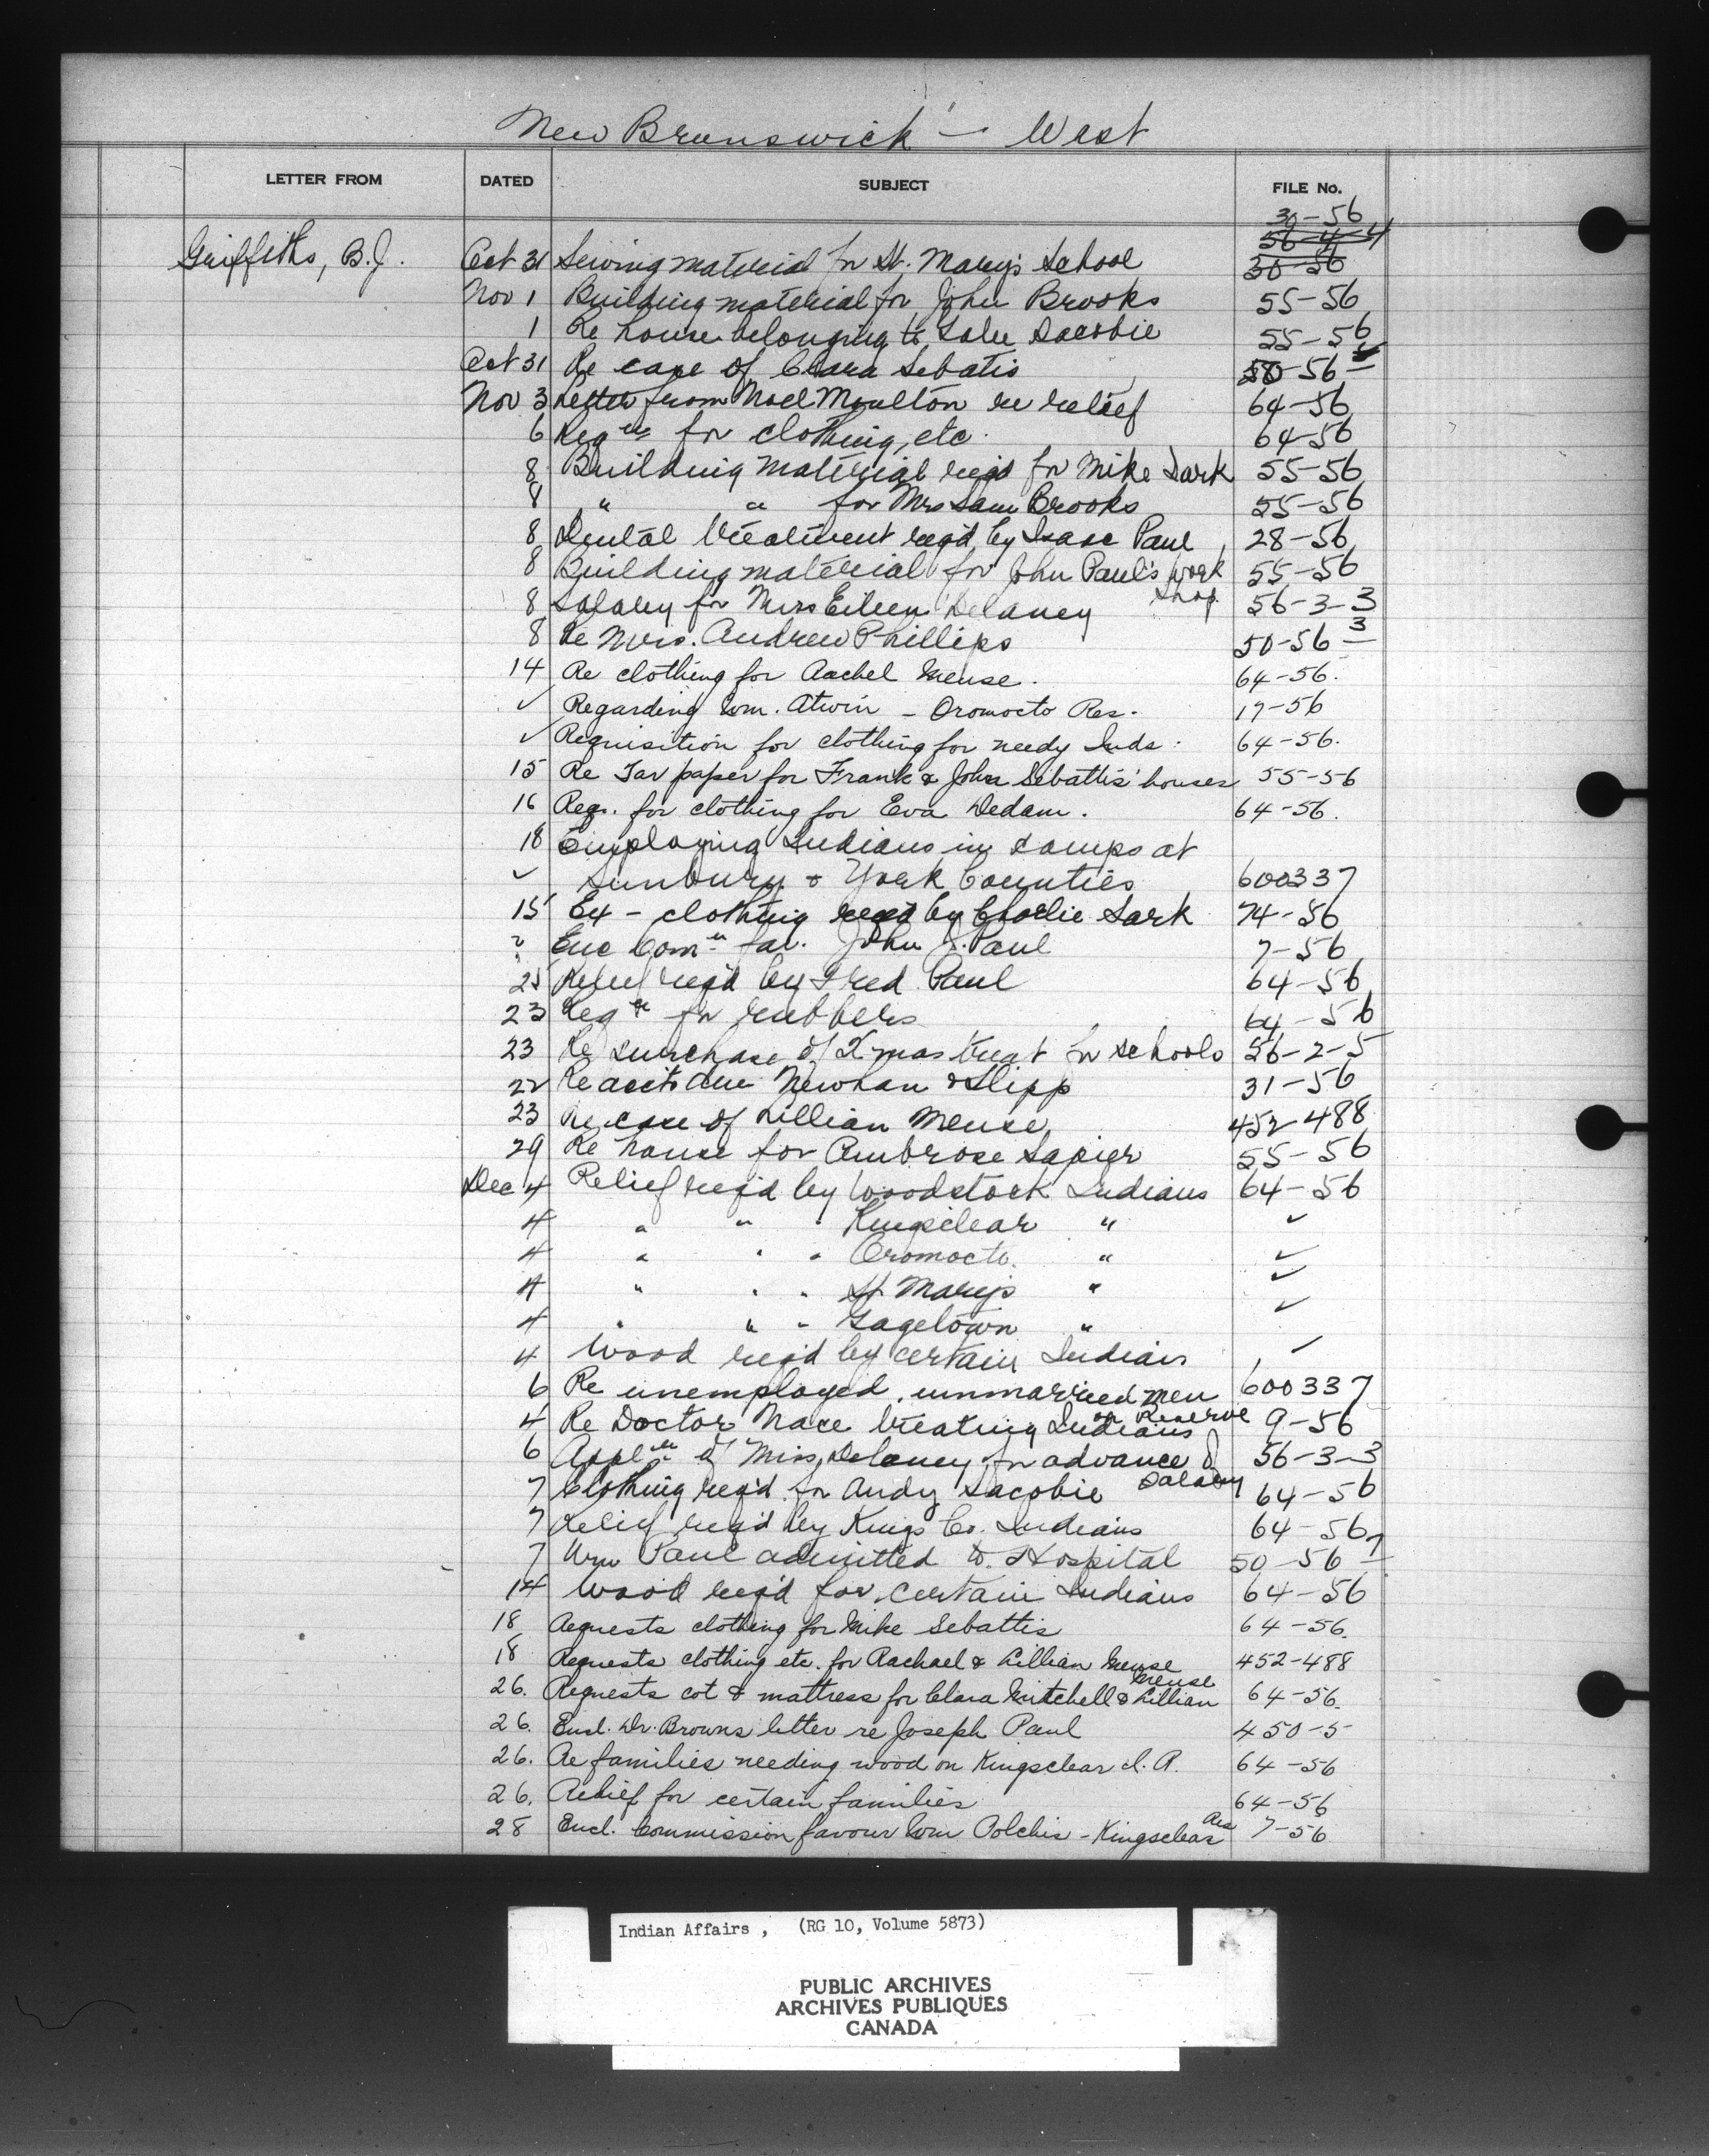 New Brunswick - West
LETTER FROM DATED SUBJECT FILE No.
30-56
56-4-4
Griffiths, B.J. Oct 31 Sewing material for St. Mary's School 30-56
Nov 1 Building material for John Brooks 55-56
1 Re house belonging to Sacobie 55-56
Oct 31 Re case of Clara Sebatis 50-56
Nov 3 Letter from Noel Moulton re relief 64-56
6 Reqn for clothing, etc. 64-56
8 Building material req'd for Mike Sark 55-56
8 " " for Mrs Sam Brooks 55-56
8 Dental treatment req'd by Isaac Paul 28-56
8 Building material for John Paul's work shop 55-56
8 Salary for Miss Eileen Delaney 56-3-3
8 Re Mrs. Andrew Phillips 50-56 3
14 Re clothing for Rachel Meuse. 64-56.
✓ Regarding Wm. Atwin - Oromocto Res. 17-56
✓ Requisition for clothing for needy Inds. 64-56.
15 Re Tar paper for Frank & John Sebattis' houses 55-56
16 Reqs. for clothing for Eva Dedam. 64-56.
18 Employing Indians in camps at
✓ Sunbury & York Counties 600337
15 Ex - clothing req'd by Charlie Sark 74-56
? Enc Comn fav. John J. Paul 7-56
25 Relief req'd by Fred Paul 64-56
23 Reqn for rubbers 64-56
23 Re purchase of Xmas treat for schools 56-2-5
22 Re accts due Newhan & Slipp 31-56
23 Re case of Lillian Meuse 452-488
29 Re house for Ambrose Sapier 55-56
Dec 4 Relief req'd by Woodstock Indians 64-56
4 " " " Kingsclear " ✓
4 " " " Oromocto. " ✓
4 " " " St Mary's " ✓
4 " " " Gagetown " ✓
4 Wood req'd by certain Indians ✓
6 Re unemployed, unmarried men 600337
4 Re Doctor Nace treating Indians on Reserve 9-56
6 Appln of Miss Delaney for advance of Salary 56-3-3
7 Clothing req'd for Andy Sacobie 64-56
7 Relief req'd by Kings Co. Indians 64-56
7 Wm Paul admitted to Hospital 50-56 7
14 Wood req'd for certain Indians 64-56
18 Requests clothing for Mike Sebattis 64-56.
18 Requests clothing etc. for Rachael & Lillian Meuse 452-488
26. Requests cot & mattress for Clara Mitchell & Lillian Meuse 64-56.
26. Encl. Dr. Browns letter re Joseph Paul 450-5
26. Re families needing wood on Kingsclear I.R. 64-56
26. Relief for certain families 64-56
28 Encl. Commission favour Wm Polchis - Kingsclear Res 7-56
Indian Affairs, (RG 10, Volume 5873)
PUBLIC ARCHIVES
ARCHIVES PUBLIQUES
CANADA